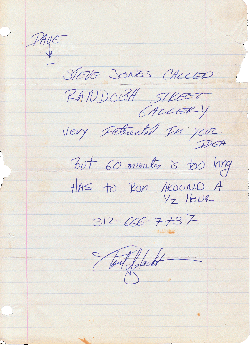 DAVE
STEVE JONES CALLED
RANDOLPH STREET
GALLERY
VERY INTERESTED IN YOUR
IDEA
BUT 60 minutes is too long
HAS TO RUN AROUND A
1/2 HOUR
312 666 7737